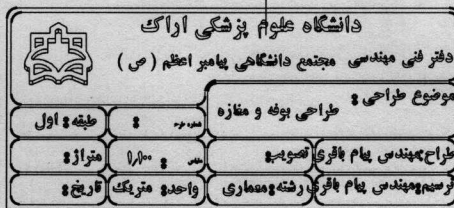 دانشگاه علوم پزشکی اراک
دفتر فنی مهندسی مجتمع دانشگاهی پیامبر اعظم ( ص )
موضوع طراحی :
طراحی بوفه و مغازه
شماره نقشه :
طبقه : اول
طراح:مهندس پیام باقری
تصویب:
مقیاس : ۱٫۱۰۰
متراژ :
ترسیم:مهندس پیام باقری
رشته:معماری
واحد: متریک
تاریخ :